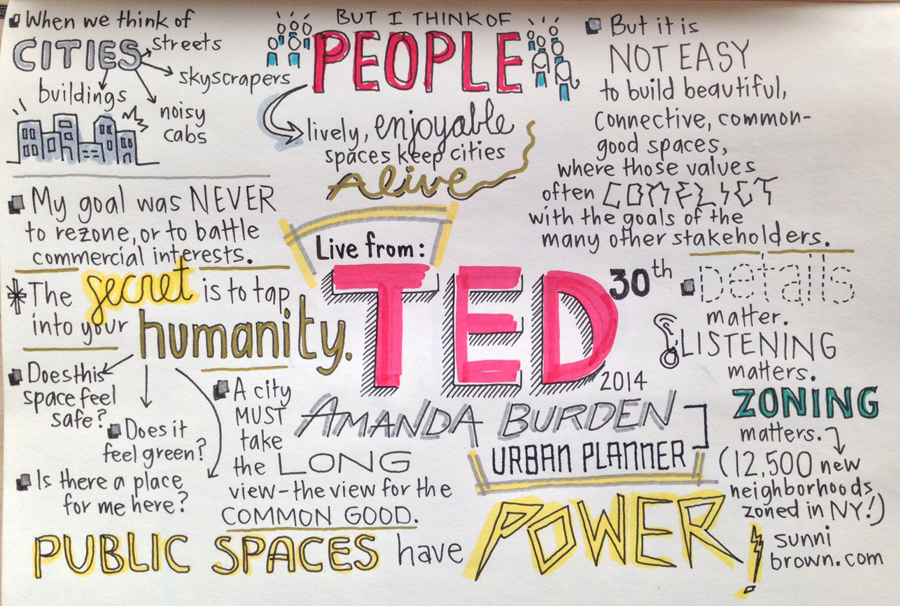 When we think of
CITIES
streets
skyscrapers
buildings
noisy
cabs
BUT I THINK OF
PEOPLE
lively, enjoyable
spaces keep cities
Alive
But it is
NOT EASY
to build beautiful,
connective, common-
good spaces,
where those values
often CONFLICT
with the goals of the
many other stakeholders.
My goal was NEVER
to rezone, or to battle
commercial interests.
The secret is to tap
into your humanity.
Does this
space feel
safe?
Does it
feel green?
Is there a place
for me here?
A city
MUST
take
the LONG
view - the view for the
COMMON GOOD.
Live from:
TED
30th
2014
AMANDA BURDEN
URBAN PLANNER
Details
matter.
LISTENING
matters.
ZONING
matters.
(12,500 new
neighborhoods
zoned in NY!)
PUBLIC SPACES have POWER
sunni
brown.com